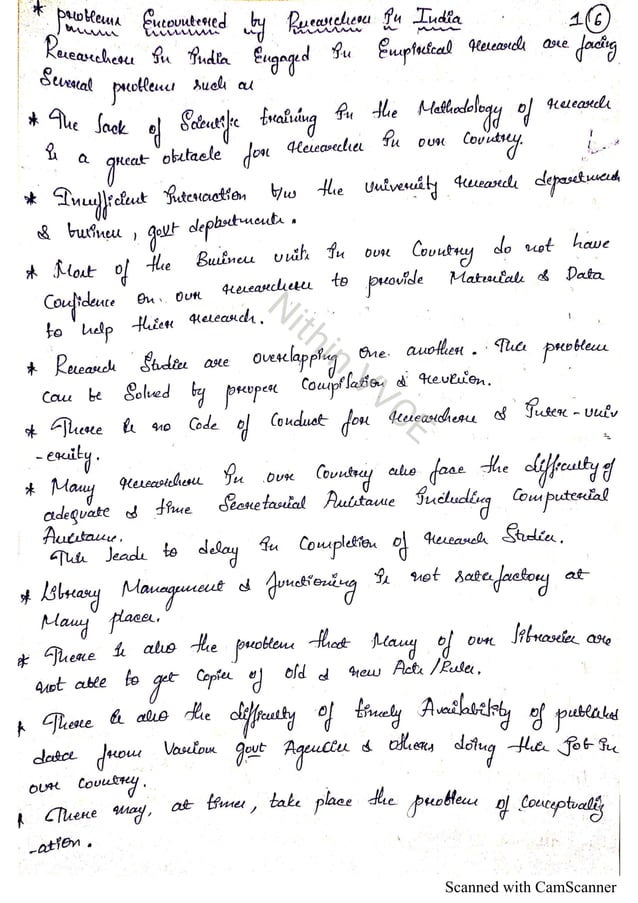 * problems Encountered by Researchers In India 1(6)
Researchers In India Engaged In Empirical research are facing
Several problems such as
* The lack of Scientific training In the Methodology of research
Is a great obstacle for researcher In our Country.
* Insufficient Interaction b/w the university research departments
& business, govt depbartments.
* Most of the Business units In our Country do not have
Confidence on our researchers to provide Materials & Data
to help their research.
* Research Studies are overlapping one another. This problem
can be Solved by proper Compilation & revision.
* There is no Code of Conduct for researchers & Inter-univ
-ersity.
* Many researchers In our Country also face the difficulty of
adequate & time Secretarial Assistance Including Computerial
Assistance.
This leads to delay In Completion of research Studies.
* Library Management & functioning Is not satisfactory at
Many places.
* There Is also the problem that Many of our libraries are
not able to get Copies of old & new Acts/Rules.
* There is also the difficulty of timely Availability of published
data from Various govt Agencies & others doing the Job In
our Country.
* There may, at times, take place the problem of Conceptualiz
-ation.
Nithin VVCE
Scanned with CamScanner